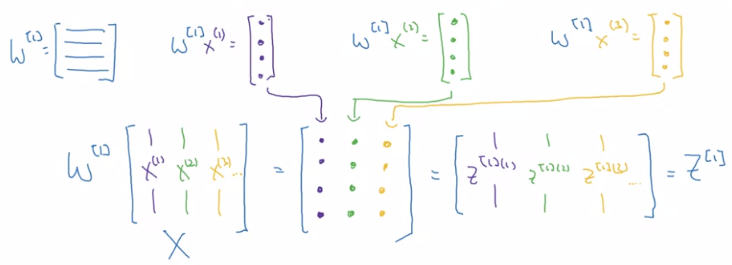 W^[1] = [ ] W^[1] x^(1) = [ ] W^[1] x^(2) = [ ] W^[1] x^(3) = [ ]
W^[1] [ x^(1) x^(2) x^(3) ... ] = [ ] = [ z^[1](1) z^[1](2) z^[1](3) ... ] = Z^[1]
X